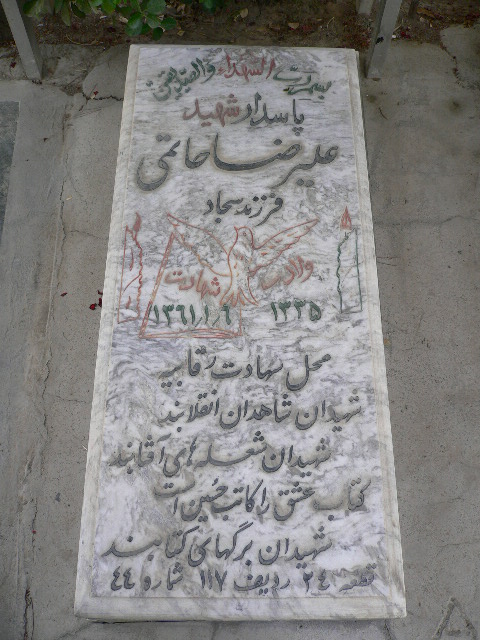 بسم رب الشهداء والصدیقین
پاسدار شهید
علیرضا حاتمی
فرزند سجاد
ولادت شهادت
۱۳۳۵ ۱۳۶۱/۱/۹
محل شهادت رقابیه
شهیدان شاهدان انقلابند
شهیدان شعله های آفتابند
کتاب عشق را کاتب حسین است
شهیدان برگهای کتابند
قطعه ۲۴ ردیف ۱۱۷ شماره ۴۴